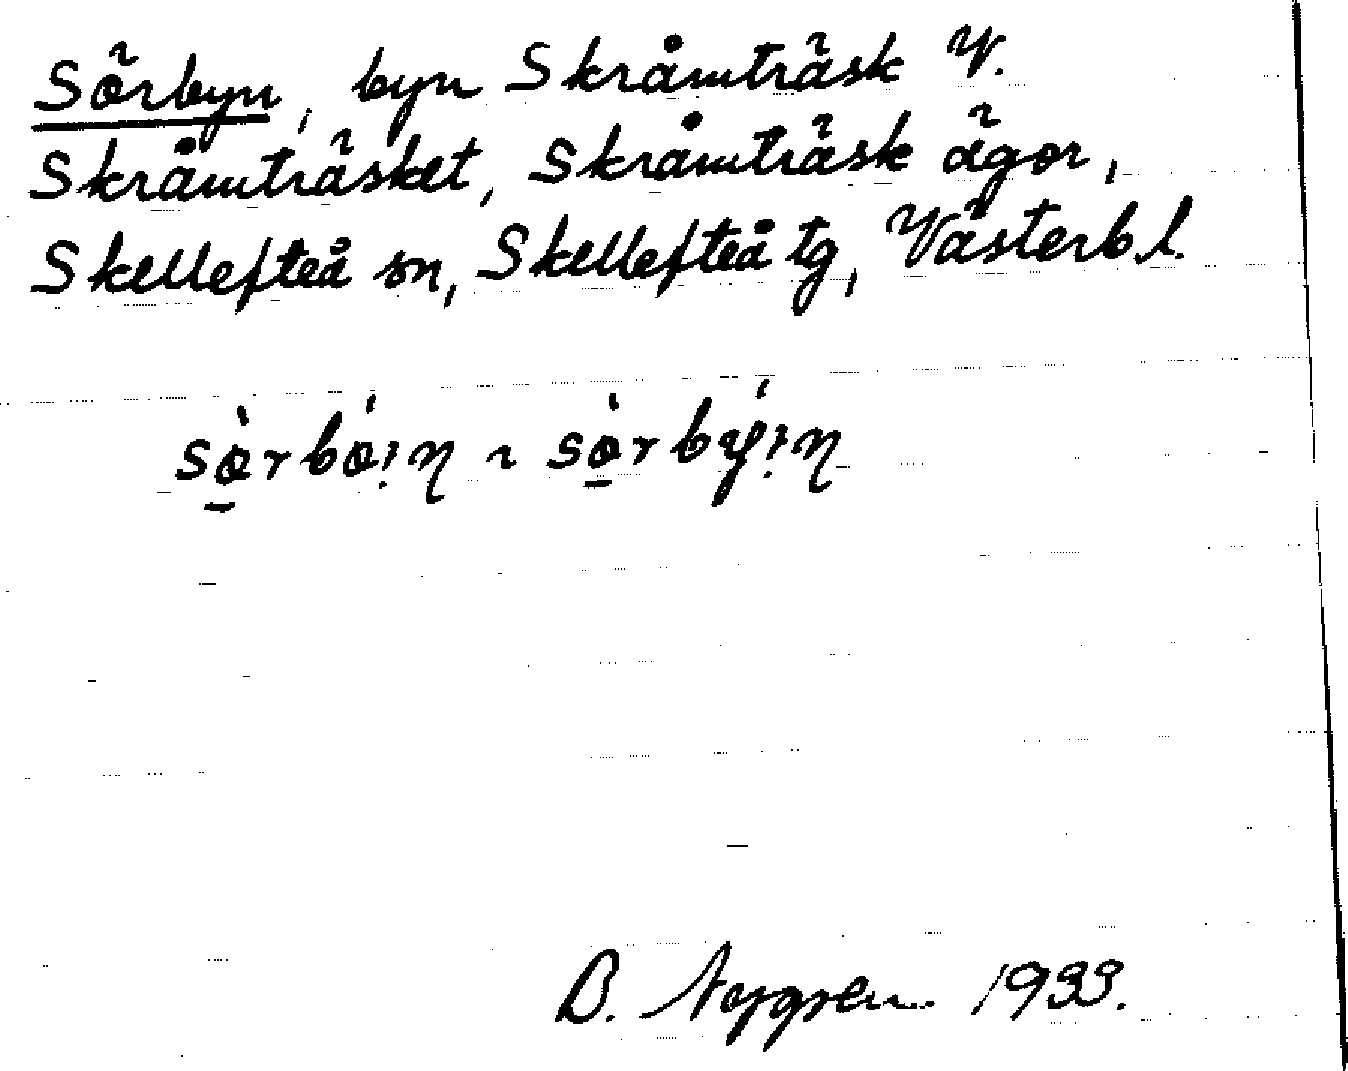 Sörbyn, byn Skråmträsk V.
Skråmträsket, Skråmträsk ägor,
Skellefteå sn, Skellefteå tg, Västerb.l.
B. 1933.